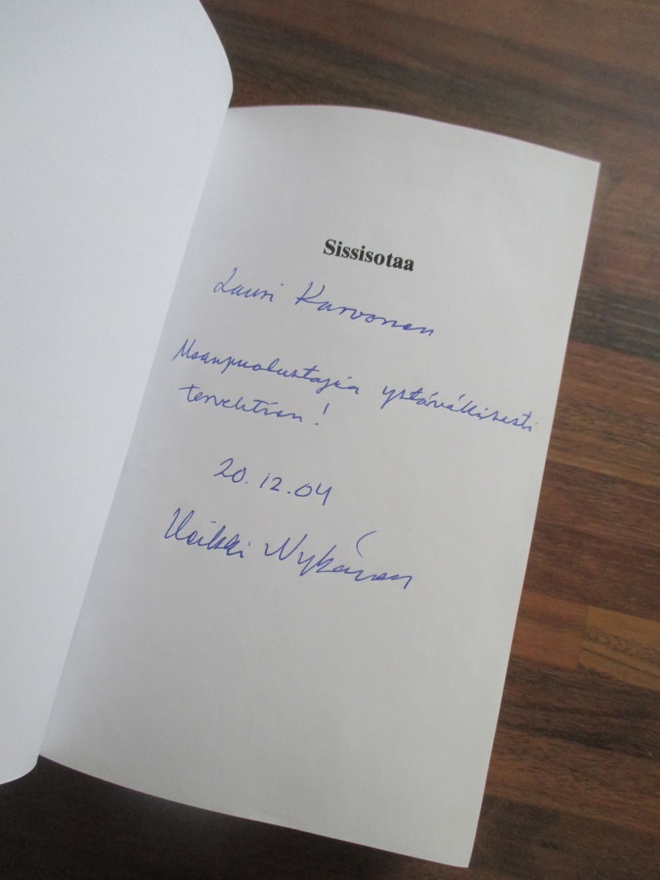 Sissisotaa
Lauri Karvonen
Maanpuolustajaa ystävällisesti
tervehtien!
20.12.04
Veikko Nykänen